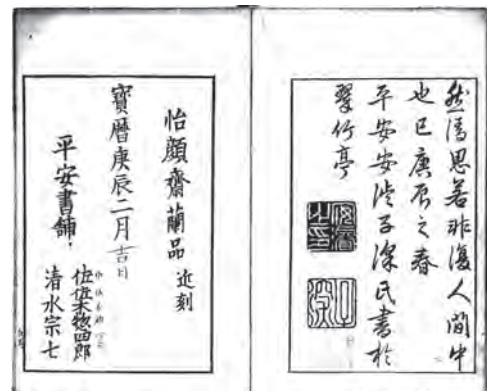 然為思若非復人間中
也已庚辰之春
平安安淡子深氏書於
翠竹亭
怡顔齋蘭品 近刻
寶曆庚辰二月吉日
平安書舖
佐佐木惣四郎
清水宗七